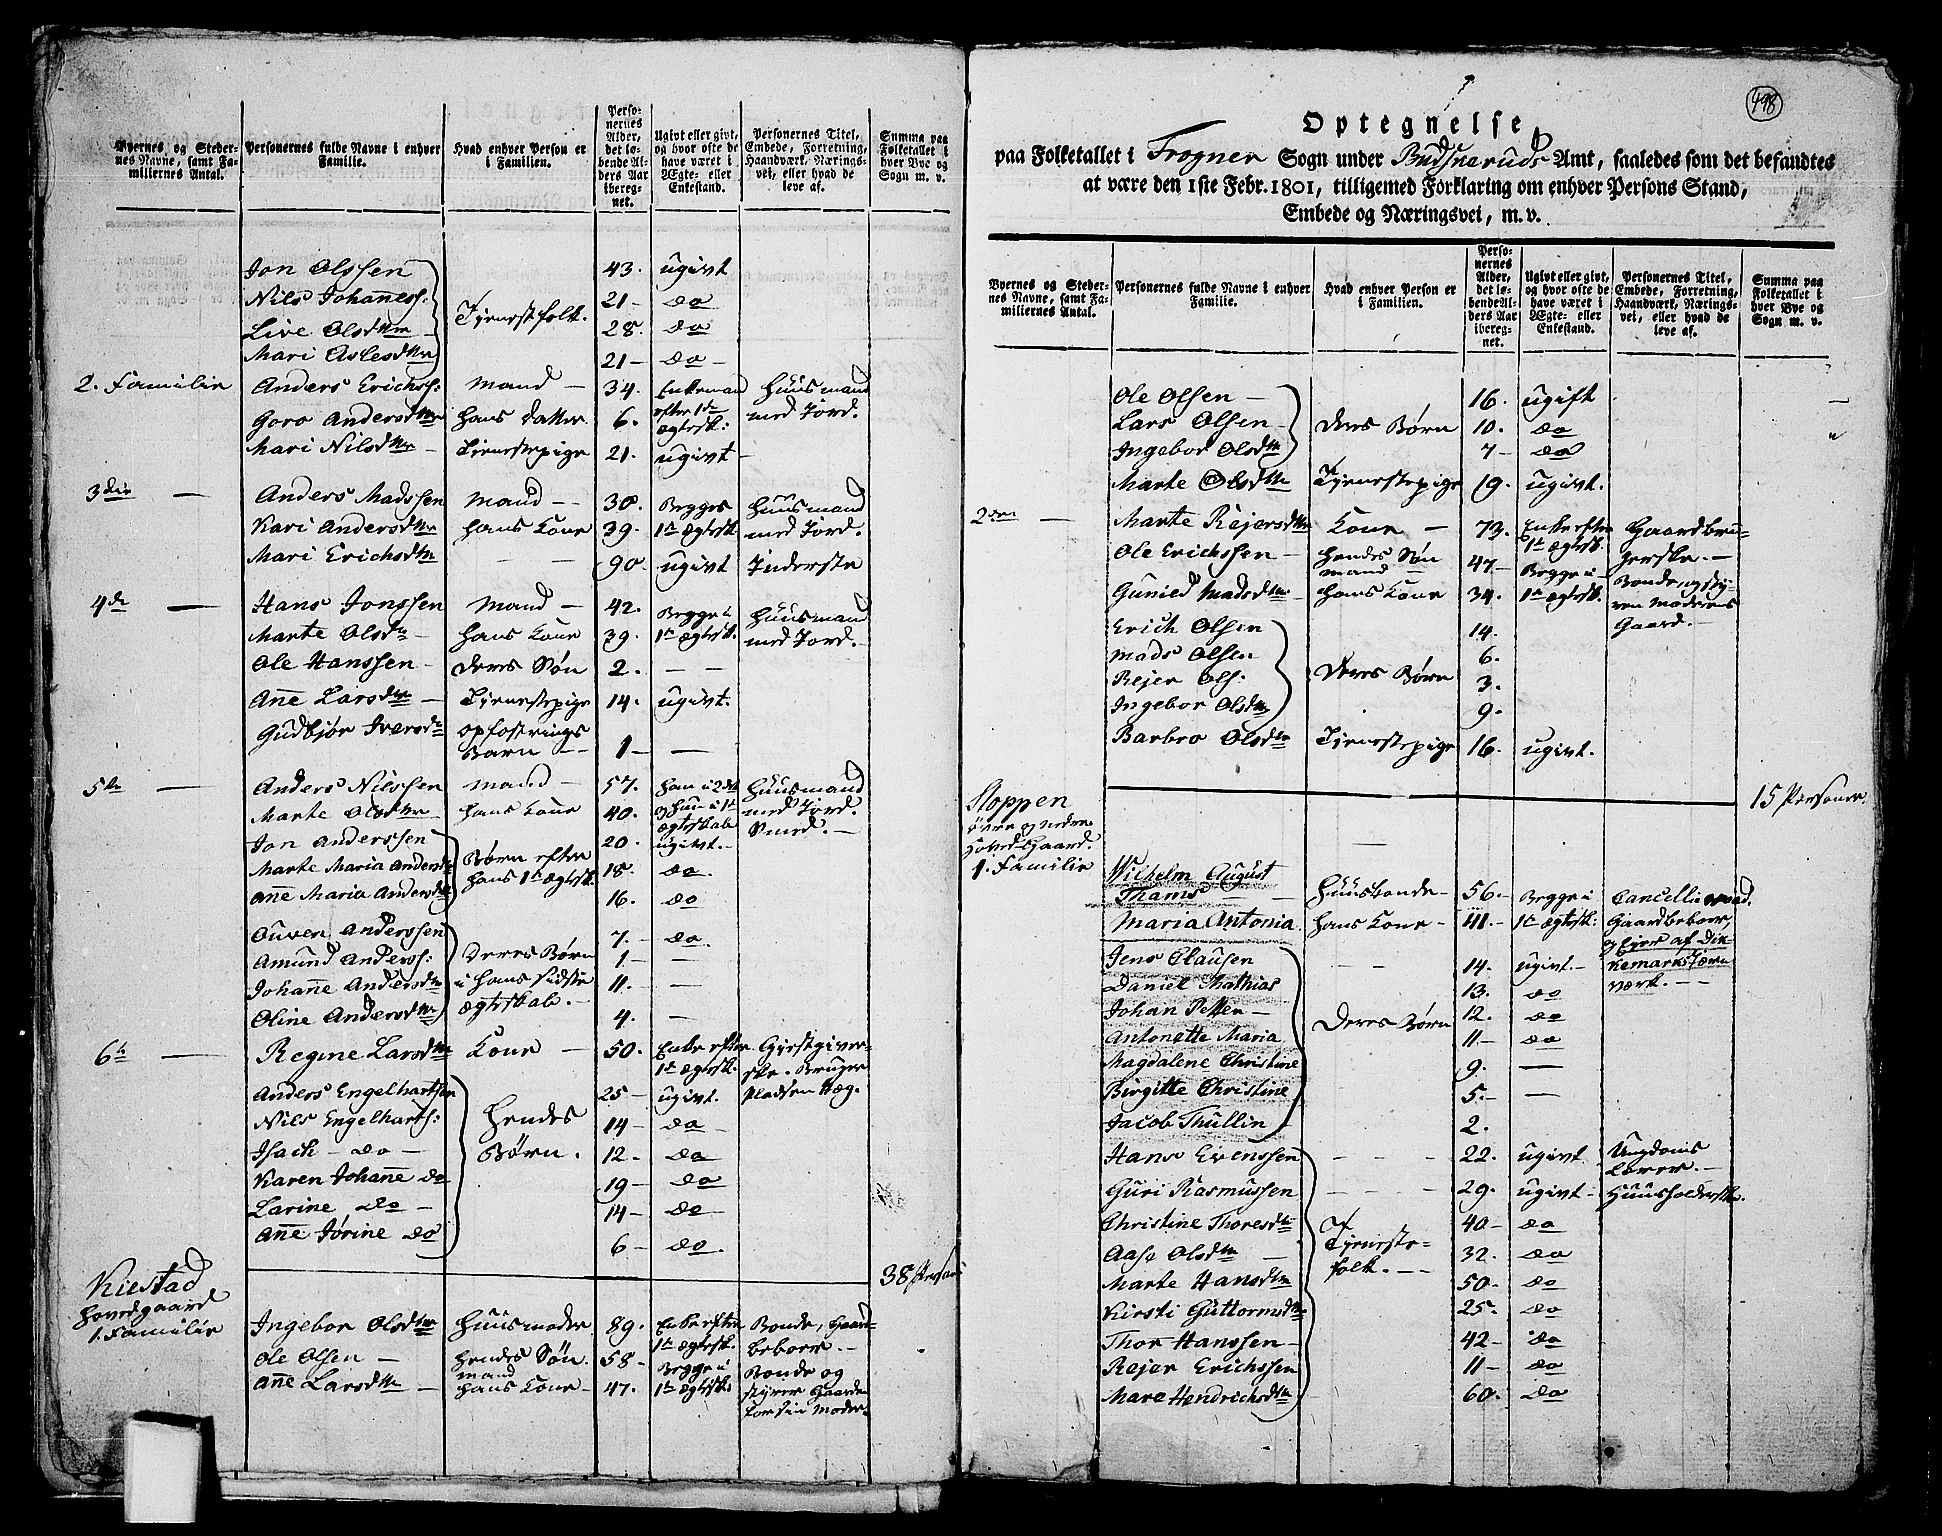 Byernes og Steder-
nes Navne, samt Fa-
miliernes Antal.
Personernes fulde Navne i enhver
Familie.
Hvad enhver Person er
i Familien.
Perso-
nernes
Alder,
det lø-
bende Al-
ders Aar
ibereg-
net.
Ugivt eller givt,
og hvor ofte de
have været i
Ægte- eller
Enkestand.
Personernes Titel,
Embede, Forretning,
Haandværk, Nærings-
vei, eller hvad de
leve af.
Summa paa
Folketallet i
hver Bye og
Sogn m. v.
Jon Olssen 43. ugivt
Nils Johaness: 21 – do
Tjenestefolk.
Live Olsdttr 28. do
Mari Aslesdttr 21 – do –
2. Familie Anders Erichss: Mand – 34. Enkemand Huusmand
Goro Andersdttr hans datter 6. efter 1te med Jord.
ægtesk:
Mari Nilsdttr Tienestepige 21. ugivt –
3die — Anders Madssen Mand — 30. Begges Huusmand
Kari Andersdttr hans Kone 39. 1te ægtesk. med Jord.
Mari Erichsdttr — — 90. ugivt Inderste
4de — Hans Jonssen Mand – 42. Begge i Huusmand
Marte Olsdtr – hans Kone 39. 1te ægtesk. med Jord.
Ole Hanssen – deres Søn 2. — —
Ane Larsdttr – Tjenestepige 14. ugivt.
Gudbjør Iversdtr opfostrings
Barn –– 1 — —
5te — Anders Nilssen Mand – 57. han i 2det Huusmand
Marte Olsdttr hans Kone 40. og hun i 1te med Jord.
ægteskab Smed. –
Jon Anderssen 20. ugivt. –
Marte Maria Andersdtr Børn efter 18. do.
hans 1te ægtesk.
Ane Maria Andersdtr 16. do
Ouven Anderssen 7. – do.
Amund Anderss: deres Børn 1 — —
Johane Andersdttr i hans sidste 11. —
Oline Andersdttr ægteskab. — 4. —
6te — Regine Larsdttr Kone — 50. Enke efter Gjestgiver-
1te ægtesk. ske. Bruger
Anders Engelhartsen 25 – ugivt. Pladsen Hæg.
Nils Engelharts: hendes 14 – do –
Isach – do – Børn. 12. do
Karen Johane do 19 – do
Larine do – 14 – do
Ane Jørine do 6 – do.
38 Person
Kiestad
Hovedgaard
1. Familie Ingebor Olsdttr Huusmoder 89. Enke efter Bonde, Gaard-
1te ægtesk. beboer. –
Ole Olsen — hendes Søn 58 – Begge i Bonde og
mand
Ane Larsdttr – hans Kone – 47. 1te ægtesk. styrer Gaarden
for sin Moder.
498
Optegnelse
paa Folketallet i Frogner Sogn under Budsneruds Amt, saaledes som det befandtes
at være den 1ste Febr. 1801, tilligemed Forklaring om enhver Persons Stand,
Embede og Næringsvei, m. v.
Byernes og Steder-
nes Navne, samt Fa-
miliernes Antal.
Personernes fulde Navne i enhver
Familie.
Hvad enhver Person er
i Familien.
Perso-
nernes
Alder,
det lø-
bende Al-
ders Aar
ibereg-
net.
Ugivt eller givt,
og hvor ofte de
have været i
Ægte- eller
Enkestand.
Personernes Titel,
Embede, Forretning,
Haandværk, Nærings-
vei, eller hvad de
leve af.
Summa paa
Folketallet i
hver Bye og
Sogn m. v.
Ole Olssen – 16. ugift
Lars Olssen – deres Børn 10. do
Ingebor Olsdttr 7 – do
Marte Olsdttr Tjenestepige 19. ugivt.
2den — Marte Rejersdttr Kone – 73. Enke efter Gaardbru-
1te ægtesk. gerske. –
Ole Erichssen – hendes Søn 47 – Begge i Bonde, og sty-
mand
Gunild Madsdttr hans Kone 34. 1te ægtesk. ren Moderens
Gaard. –
Erich Olsen 14.
Mads Olsen 6.
deres Børn
Rejer Ols: 3.
Ingebor Olsdttr 9.
Barbro Olsdttr Tjenestepige 16. ugivt.
15 Personer.
Stoppen
øvre og nedre
Hoved Gaard.
1. Familie Wilhelm August
Thams — Huusbonde – 56. – Begge i Cancellieraad.
Maria Antonia hans Kone – 41 – 1te ægtesk: Gaardbeboer,
og Ejer af Dik-
Jens Clausen – – 14. ugivt – kemarks Jern-
Daniel Mathias 13. do værk. –
Johan Petter – deres Børn 12. do
Antonette Maria 11 – do
Magdalene Christine 9. —
Birgitte Christine 5. – —
Jacob Thullin – 2.
Hans Evenssen – – – 22. ugivt Ungdoms
Lærer. –
Guri Rasmussen – – – 29. ugivt – Huusholderske.
Christine Thoresdtr 40 – do
Tjeneste-
Aase Olsdttr – folk. — 32. do
Marte Hansdttr 50. do
Kirsti Guttormsdttr 25. do
Thor Hanssen – 42 – do
Rejer Erichssen 11 – do
Mare Hendrichsdttr 60. do